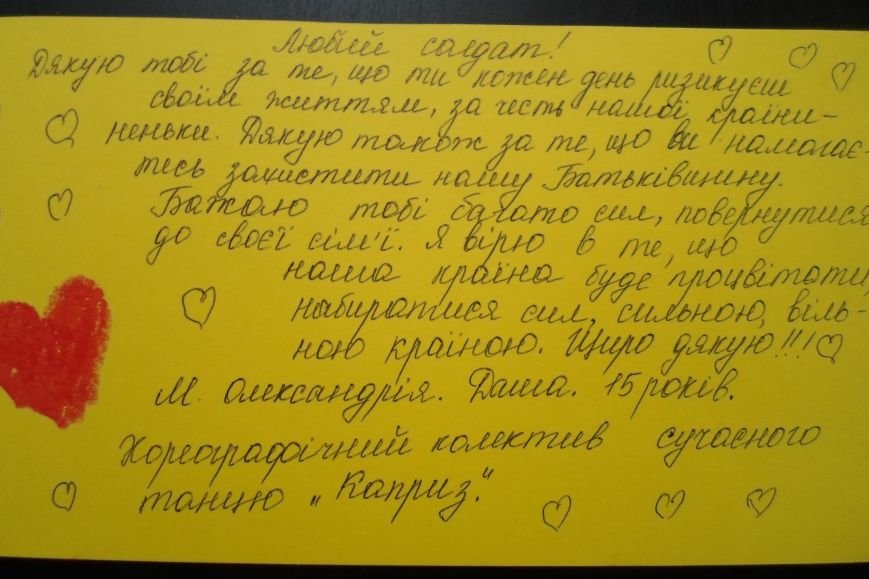 Любий солдат!
Дякую тобі за те, що ти кожен день ризикуєш
своїм життям, за честь нашої країни-
неньки. Дякую також за те, що ви намагає-
тесь захистити нашу Батьківщину.
Бажаю тобі багато сил, повернутися
до своєї сім'ї. Я вірю в те, що
наша країна буде процвітати,
набиратися сил, сильною, віль-
ною країною. Щиро дякую!!!
М. Олександрія. Даша. 15 років.
Хореографічний колектив сучасного
танцю „Каприз".